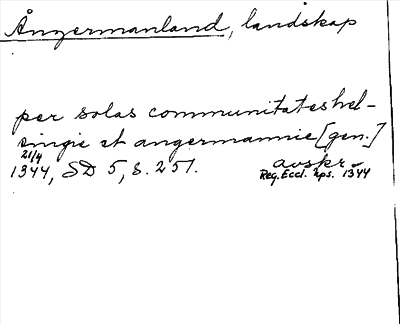 Ångermanland, landskap
per solas communitates hel-
singie et angermannie [gen.]
21/4
1344, SD 5, s. 251. avskr
Reg. Eccl. Ups. 1344